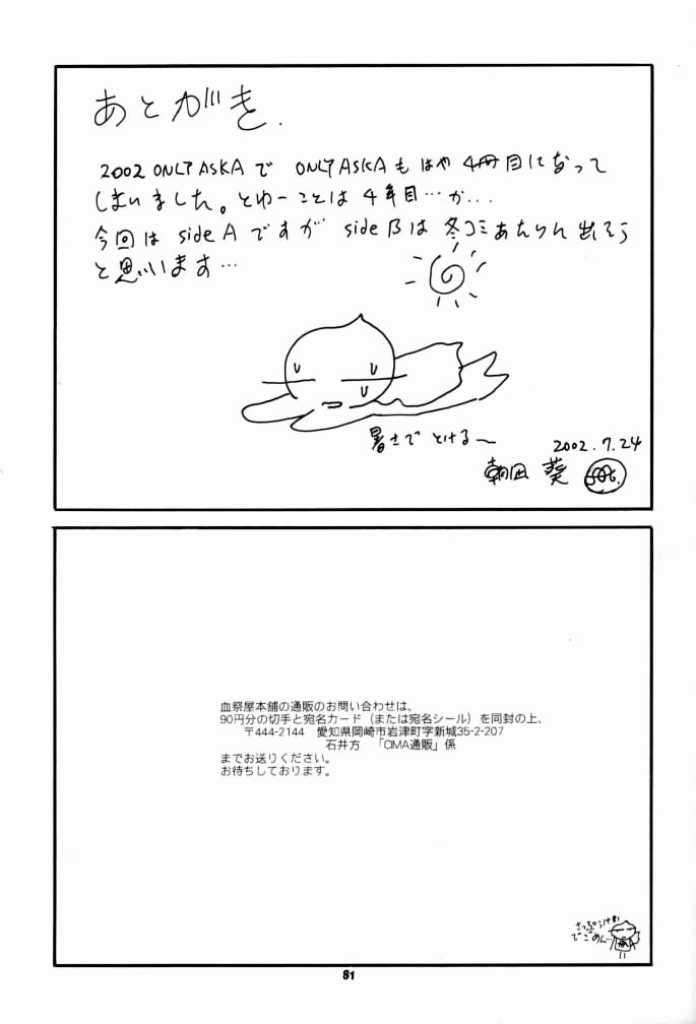 あとがき.
2002 ONLY ASKAで ONLY ASKAもはや4冊目になって
しまいました。とゆーことは4年目…か...
今回は side Aですが side Bは冬コミあたりに出そう
と思います…
暑さでとける〜
2002.7.24
朝凪 葵
血祭屋本舗の通販のお問い合わせは、
90円分の切手と宛名カード（または宛名シール）を同封の上、
〒444-2144 愛知県岡崎市岩津町字新城35-2-207
石井方 「OMA通販」係
までお送りください。
お待ちしております。
でこめん
81